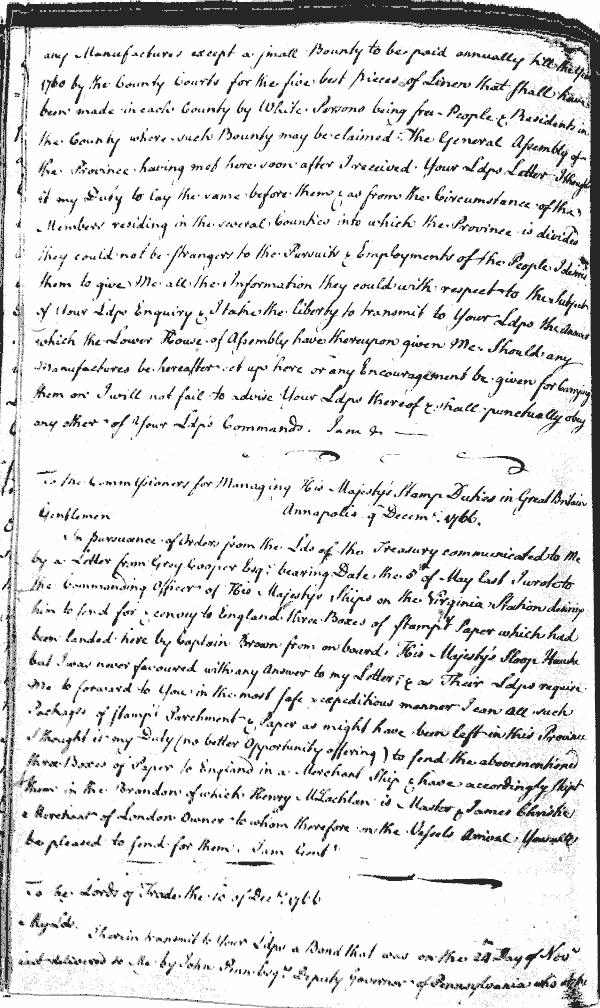 any Manufactures except a small Bounty to be paid annually till the
1760 by the County Courts for the five best pieces of Linen that shall have
been made in each County by White Persons being free People & Residents in
the County where such Bounty may be claimed. The General Assembly of
the Province having met here soon after I received Your Ldps Letter I thought
it my Duty to lay the same before them & as from the Circumstance of the
Members residing in the several Counties into which the Province is divided
they could not be strangers to the Pursuits & Employments of the People I desired
them to give Me all the Information they could with respect to the Subject
of Your Ldps Enquiry & I take the liberty to transmit to Your Ldps the Answer
which the Lower House of Assembly have thereupon given Me. Should any
Manufactures be hereafter set up here or any Encouragement be given for Carrying
them on I will not fail to advise Your Ldps thereof & shall punctually obey
any other of Your Ldps Commands. I am &
To the Commissioners for Managing His Majesty's Stamp Duties in Great Britain
Gentlemen Annapolis 9th Decemr. 1766.
In pursuance of Orders from the Lds of the Treasury communicated to Me
by a Letter from Grey Cooper Esqr. bearing Date the 5th of May last I wrote to
the Commanding Officer of His Majesty's Ships on the Virginia Station desiring
him to send for & convey to England three Boxes of stampt Paper which had
been landed here by Captain Brown from on board His Majesty's Sloop Hawke
but I was never favoured with any Answer to my Letter; & as Their Ldps require
Me to forward to You in the most safe & expeditious manner I can all such
Packages of stampt Parchment & Paper as might have been left in this Province
I thought it my Duty (no better Opportunity offering) to send the abovementioned
three Boxes of Paper to England in a Merchant Ship & have accordingly shipt
them in the Brandon of which Henry McLachlan is Master & James Christie
a Merchant of London Owner to whom therefore on the Vessels Arrival You will
be pleased to send for them. I am Gentn.
To the Lords of Trade the 10 of Decr. 1766
My Lds.
I herein transmit to Your Ldps a Bond that was on the 24th Day of Novr
last delivered to Me by John Penn Esqr. Deputy Governor of Pennsylvania who